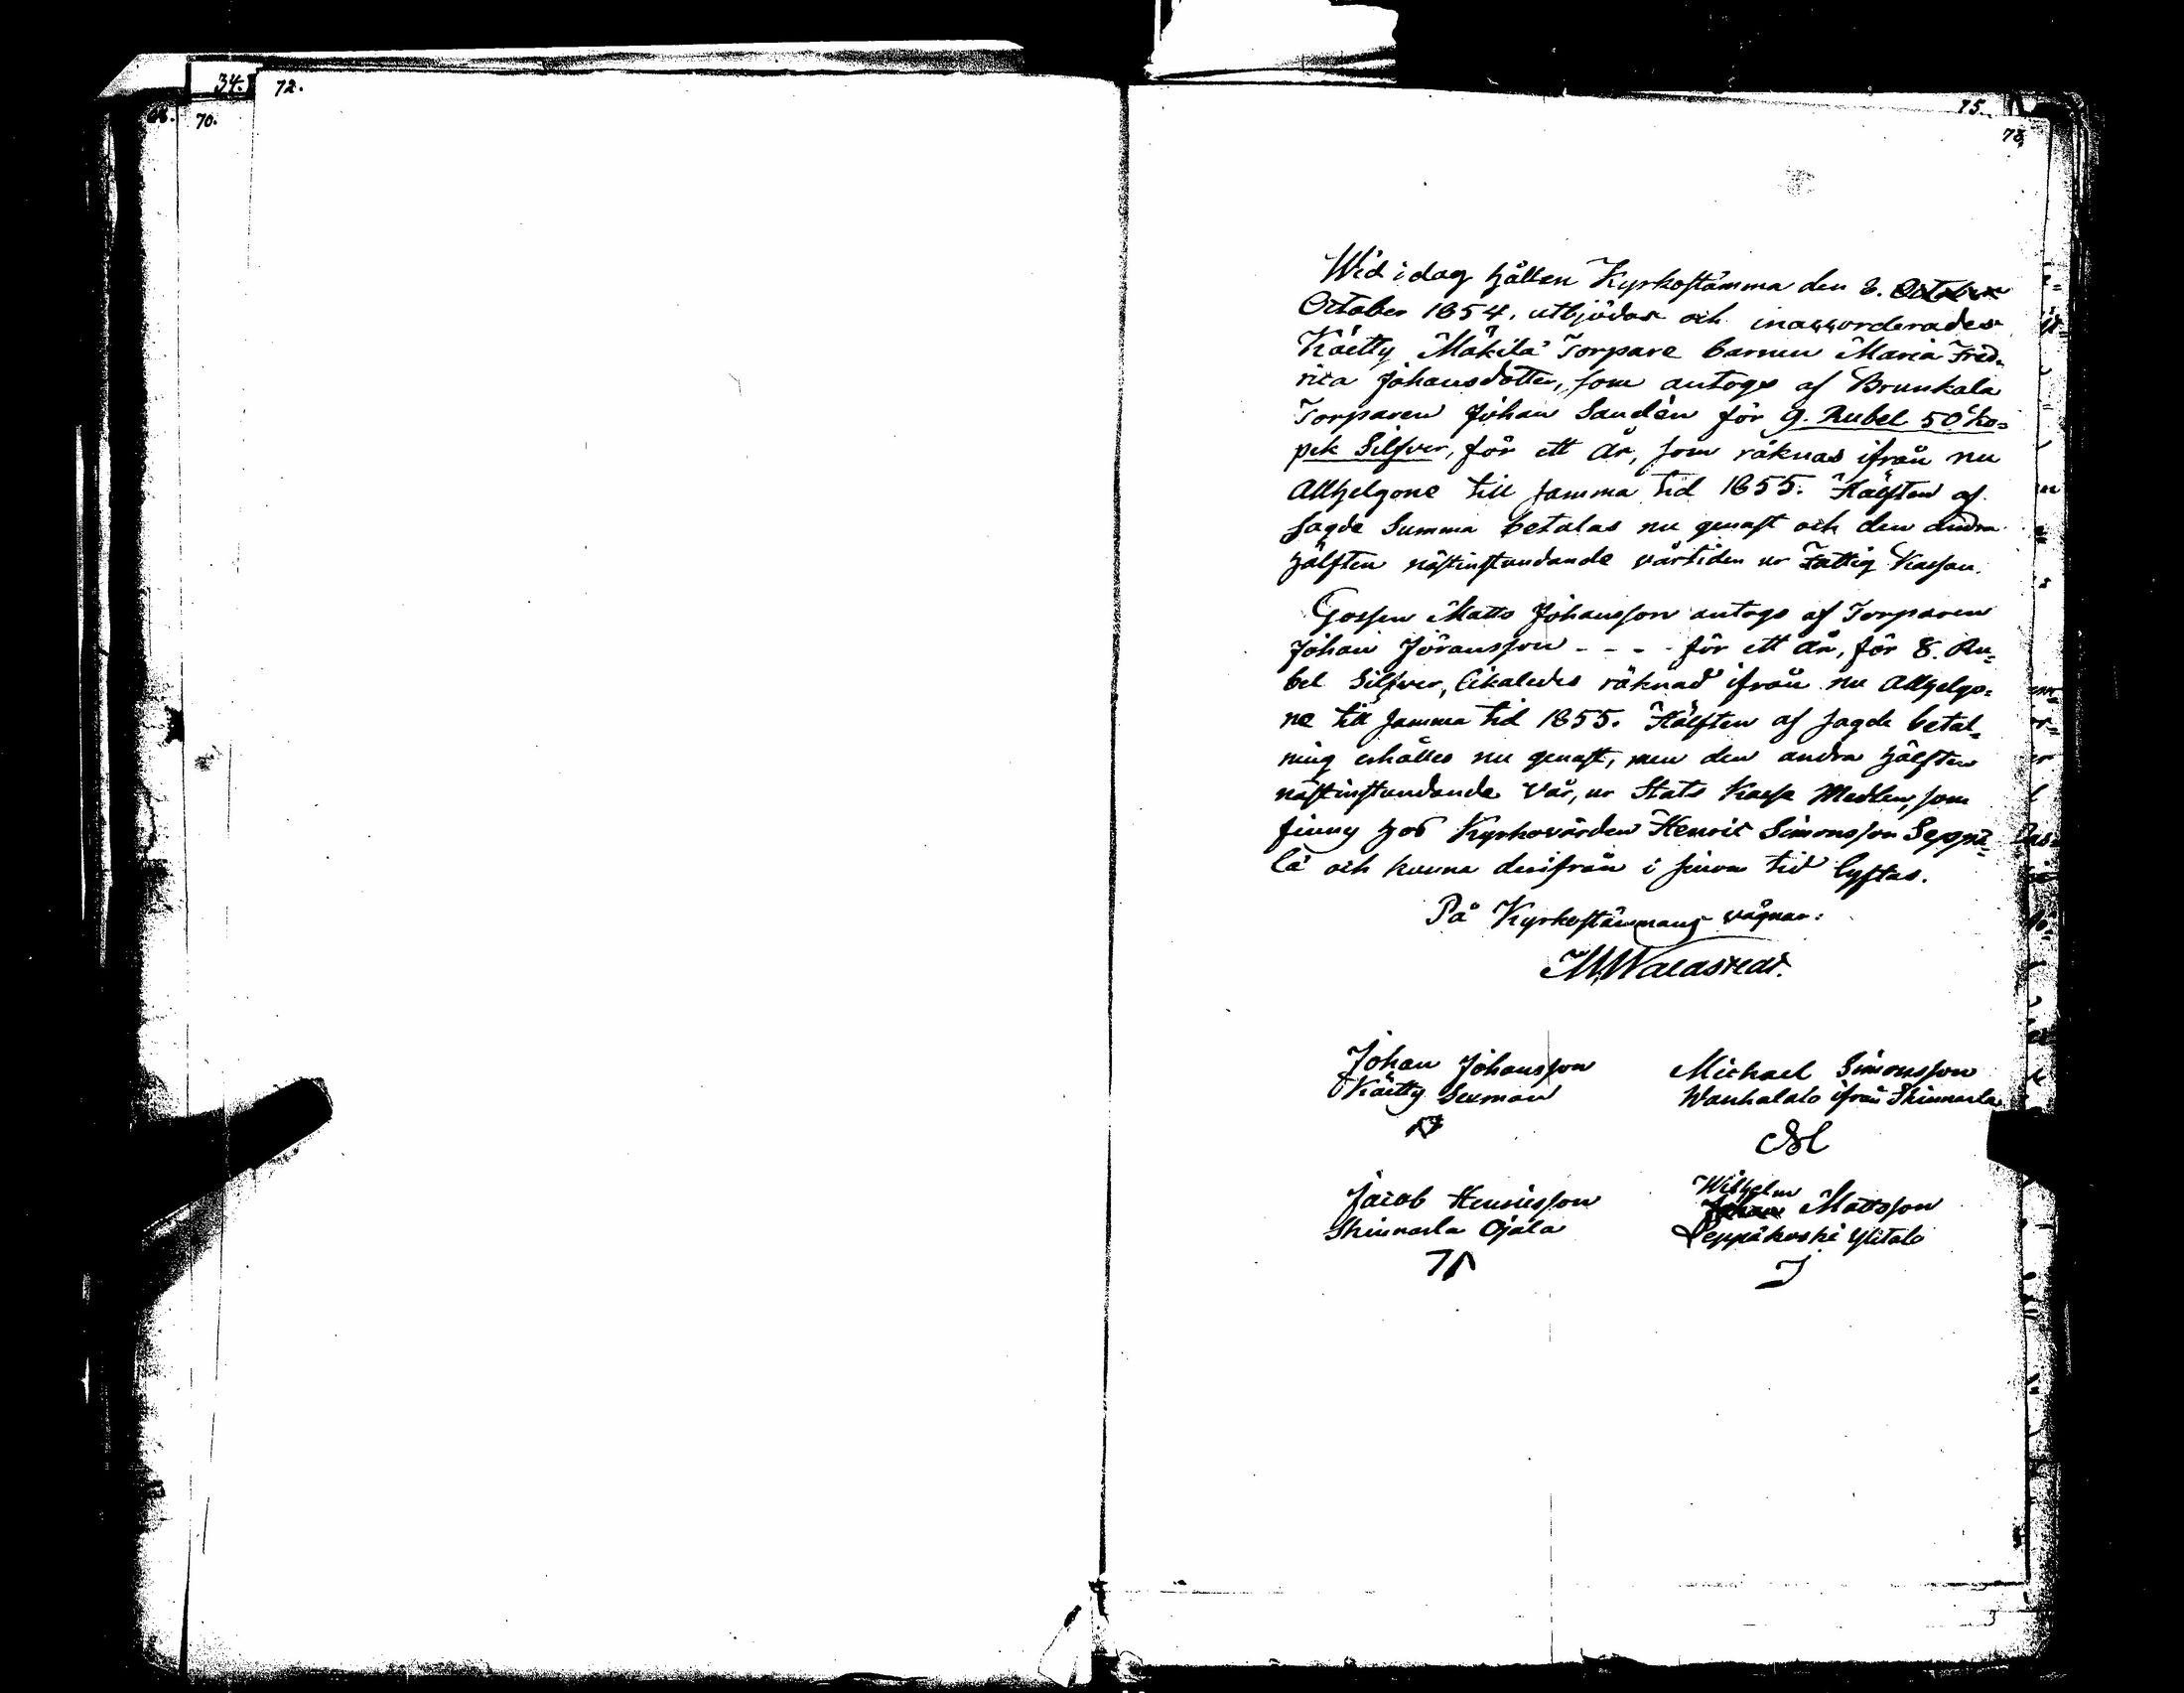 34.
72.
70.
75.
73.
Wid i dag hållen Kyrkostämma den 8.
October 1854, utbjödos och inaccorderades
Käetty Mäkilä Torpare barnen Maria Fred-
rica Johansdotter, som antogs af Brunkala
Torparen Johan Sandèn för 9. Rubel 50 Ko=
pek Silfver, för ett år, som räknas ifrån nu
Allhelgone till samma tid 1855. Hälften af
sagde Summa betalas nu genast och den andra
hälften nästinstundande vårtiden ur Fattig Kassan.
Gossen Matts Johansson antogs af Torparen
Johan Jöransson - - - - för ett år, för 8. Ru=
bel Silfver, likaledes räknad ifrån nu Allhelgo=
ne till samma tid 1855. Hälften af sagde betal=
ning erhålles nu genast, men den andra hälften
nästinstundande Vår, ur Stats Kassa Medlen, som
finns hos Kyrkovärden Henric Simonsson Seppä=
lä och kunna derifrån i sinom tid lyftas.
På Kyrkostämmans vägnar:
Johan Johansson
Käetty Sexman
Michael Simonsson
Wanhalalo ifrån Skinnarla
Jacob Henricsson
Skinnarla Ojala
Wilhelm
Mattsson
Leppäkoski Ylitalo
3